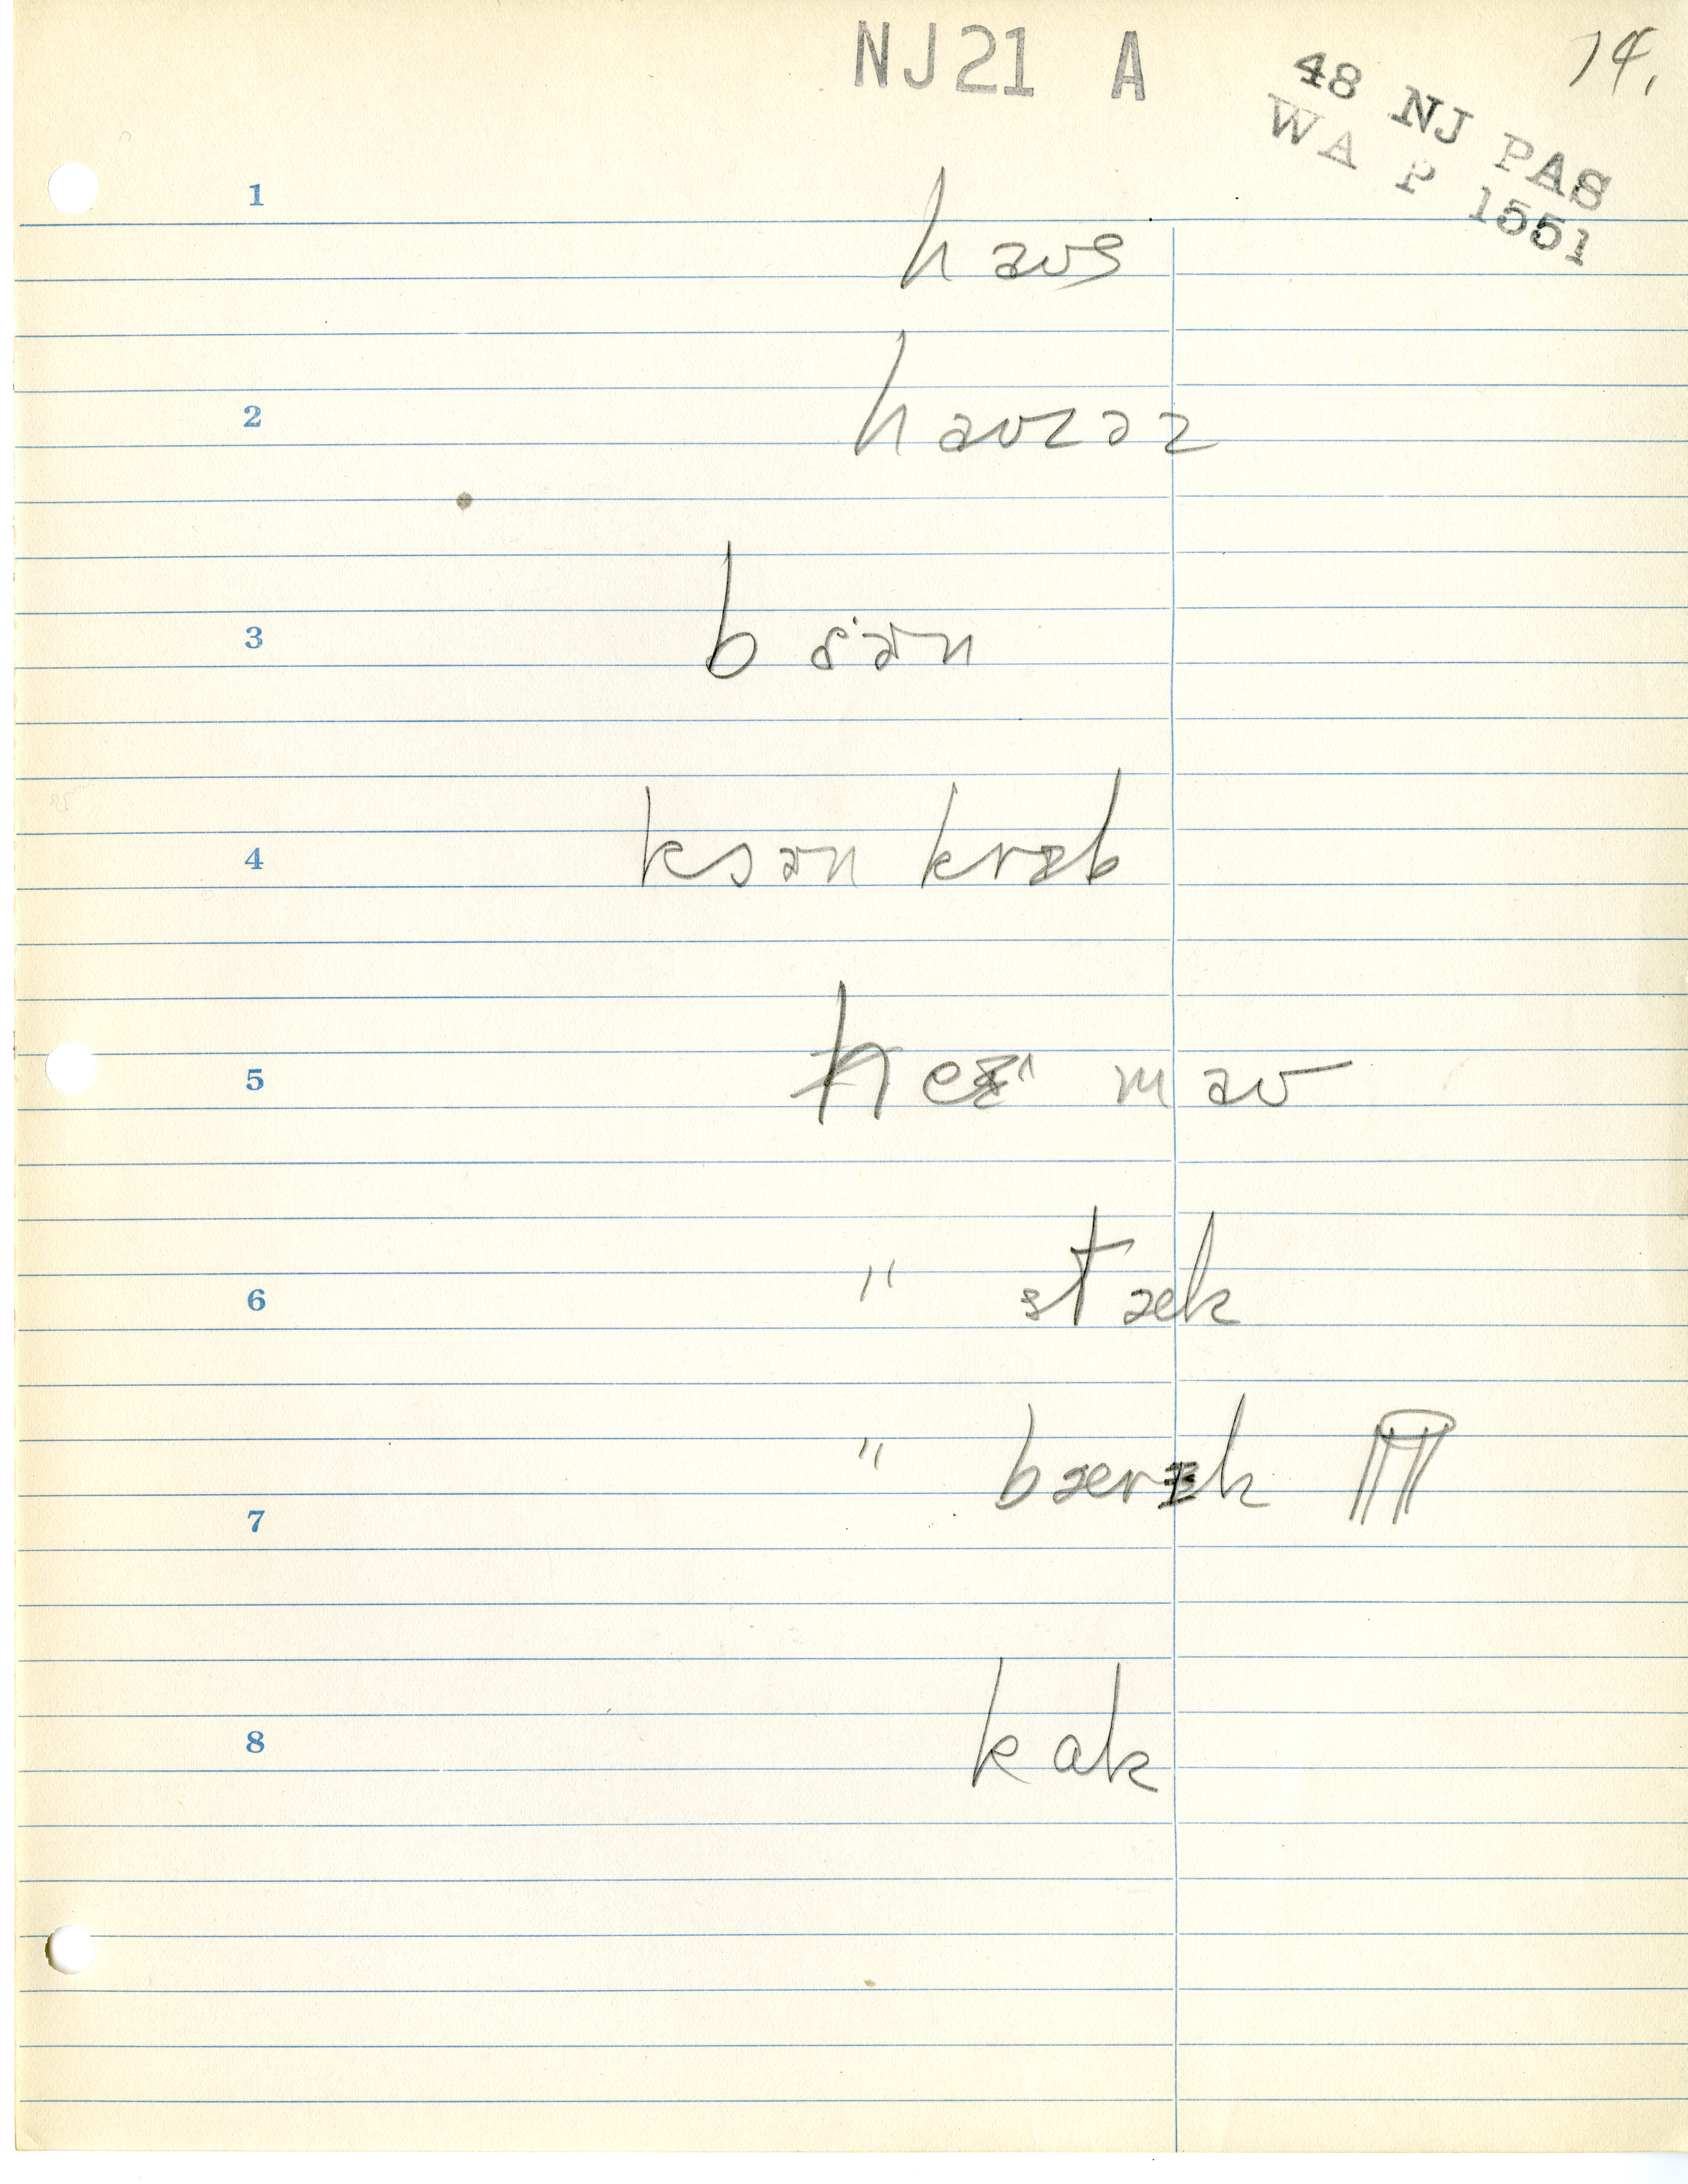 NJ21 A
14.
48 NJ PAS
WA P 1551
1
haʊs
2
haʊzəz
3
4
kɔən krɪb
5
heɪ maʊ
6
" stæk
7
" bærɪk
8
kɑk